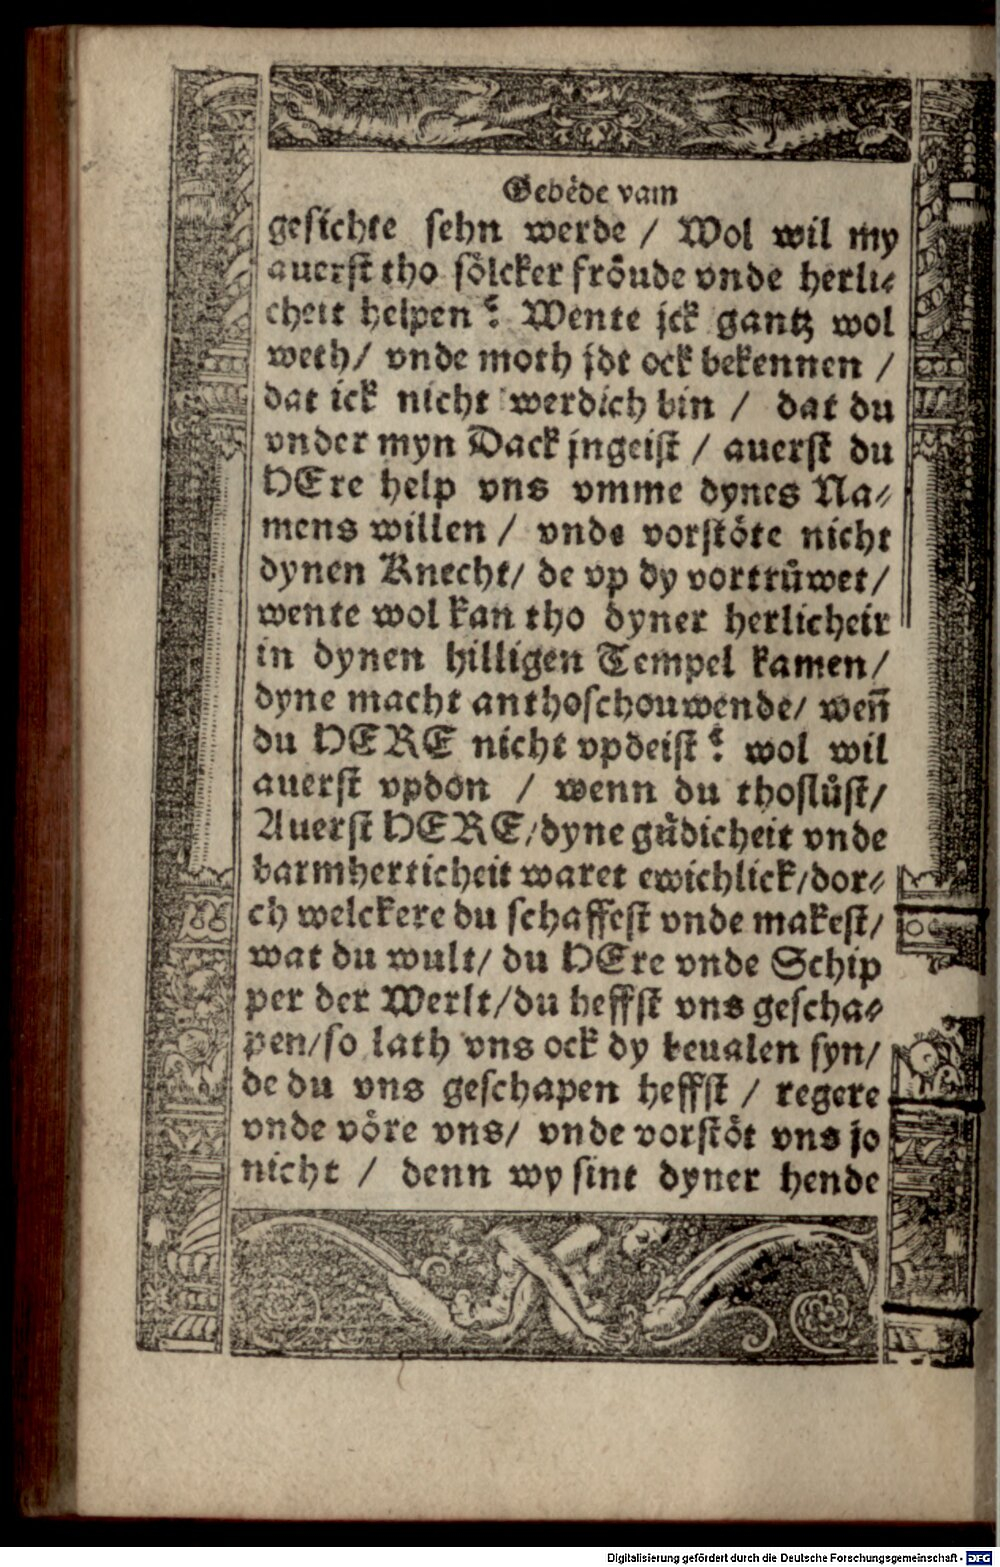 Gebëde vam
gesichte sehn werde / Wol wil my
auerst tho sölcker fröude vnde herli⸗
cheit helpen? Wente jck gantz wol
weth/ vnde moth jdt ock bekennen /
dat ick nicht werdich bin / dat du
vnder myn Dack jngeist / auerst du
HEre help vns vmme dynes Na⸗
mens willen / vnde vorstöte nicht
dynen Knecht/ de vp dy vortrůwet/
wente wol kan tho dyner herlicheit
in dynen hilligen Tempel kamen/
dyne macht anthoschouwende/ weñ
du HERE nicht vpdeist? wol wil
auerst vpdon / wenn du thoslůst/
Auerst HERE/dyne gůdicheit vnde
barmherticheit waret ewichlick/dor⸗
ch welckere du schaffest vnde makest/
wat du wult/ du HEre vnde Schip
per der Werlt/du heffst vns gescha⸗
pen/so lath vns ock dy beualen syn/
de du vns geschapen heffst / regere
vnde vöre vns/ vnde vorstöt vns jo
nicht / denn wy sint dyner hende
Digitalisierung gefördert durch die Deutsche Forschungsgemeinschaft - DFG